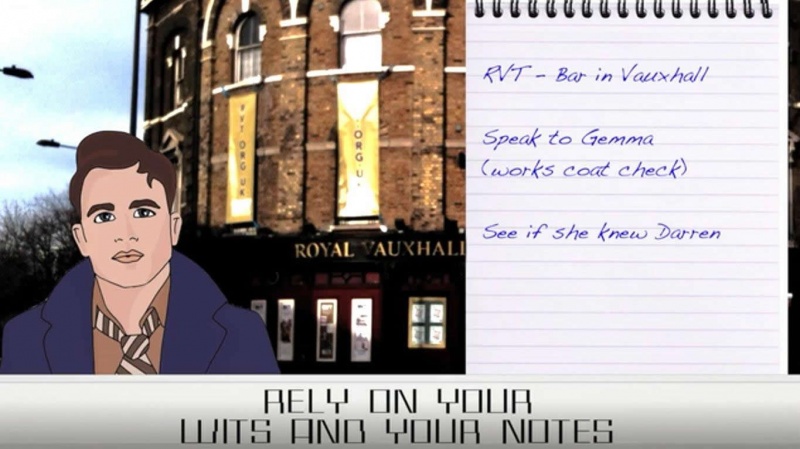 RVT.ORG.UK
.ORG.U
ROYAL VAUXHALL
RVT - Bar in Vauxhall
Speak to Gemma
(works coat check)
See if she knew Darren
RELY ON YOUR
WITS AND YOUR NOTES